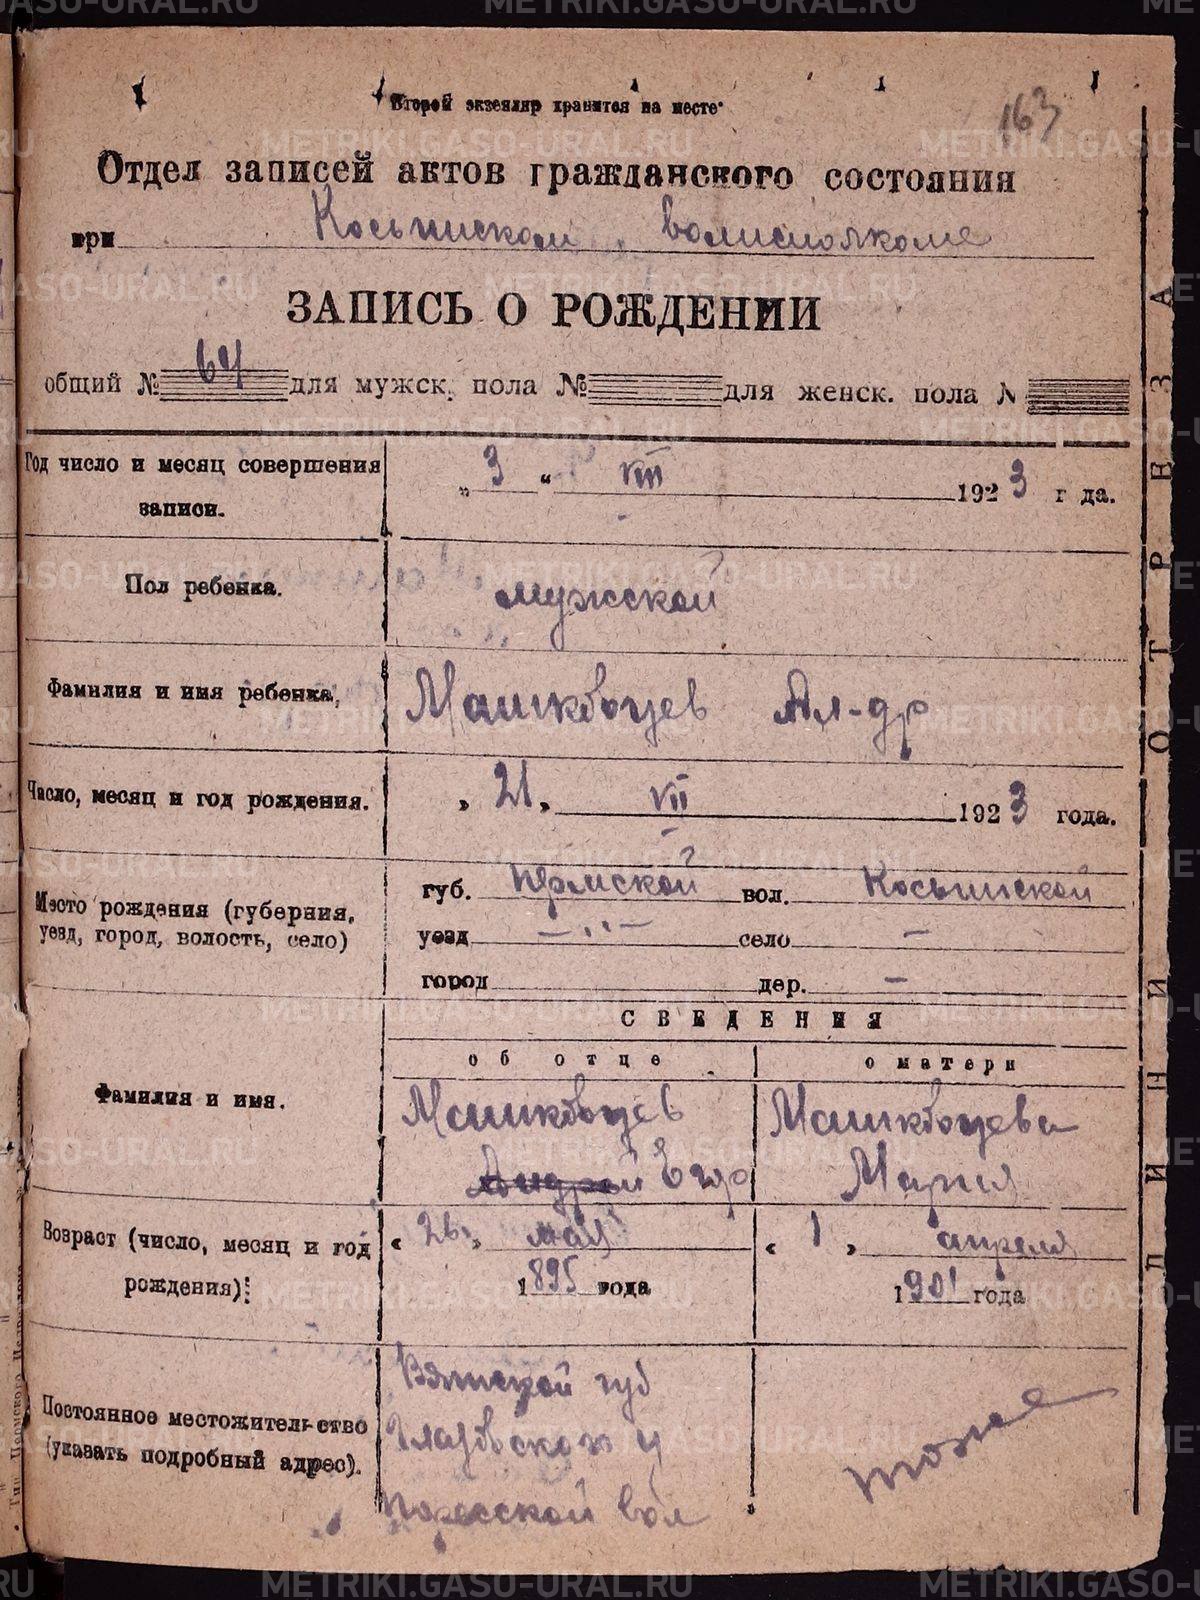 Второй экземпляр хранится на месте
163
Отдел записей актов гражданского состояния
при Косьинском волисполкоме
ЗАПИСЬ О РОЖДЕНИИ
общий № 64 для мужск. пола № для женск. пола №
Год число и месяц совершения записи.
„ 3 “ VIII 1923 г да.
Пол ребенка.
мужской
Фамилия и имя ребенка,
Машковцев Ал-др
Число, месяц и год рождения.
„ 21 „ VII 1923 года.
Место рождения (губерния, уезд, город, волость, село)
губ. Пермской вол. Косьинской
уезд -„- село -
город дер. -
СВЕДЕНИЯ
об отце
о матери
Фамилия и имя.
Машковцев
Егор
Машковцева
Мария
Возраст (число, месяц и год рождения):
„ 26 „ мая
1895 года
„ 1 „ апреля
1901 года
Постоянное местожительство (указать подробный адрес).
Вятской губ
Глазовского у
вол
тоже
ЛИНИЯ ОТРЕЗА
METRIKI.GASO-URAL.RU